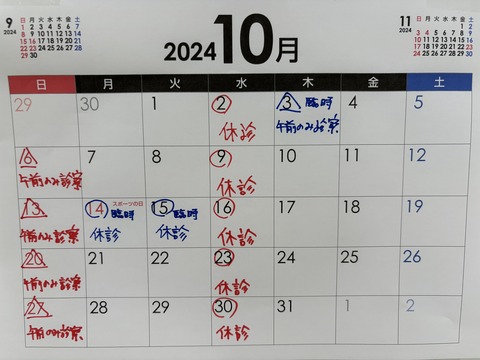 9
2024
日 月 火 水 木 金 土
1 2 3 4 5 6 7
8 9 10 11 12 13 14
15 16 17 18 19 20 21
22 23 24 25 26 27 28
29 30
2024 10月
11
2024
日 月 火 水 木 金 土
1 2
3 4 5 6 7 8 9
10 11 12 13 14 15 16
17 18 19 20 21 22 23
24 25 26 27 28 29 30
日 月 火 水 木 金 土
29 30 1 2 3 臨時 4 5
休診 午前のみ診察
6 7 8 9 10 11 12
午前のみ診察 休診
13 14 スポーツの日 臨時 15 臨時 16 17 18 19
午前のみ診察 休診 休診 休診
20 21 22 23 24 25 26
午前のみ診察 休診
27 28 29 30 31 1 2
午前のみ診察 休診